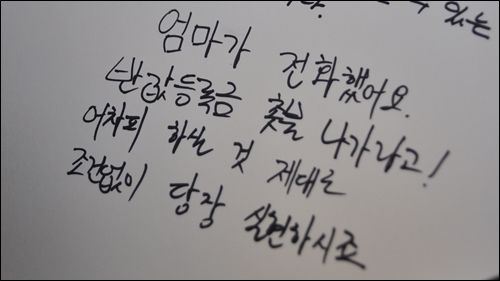 있는
엄마가 전화했어요.
반값등록금 촛불 나가라고!
어차피 하실 것 제대로
조건없이 당장 실현하시죠